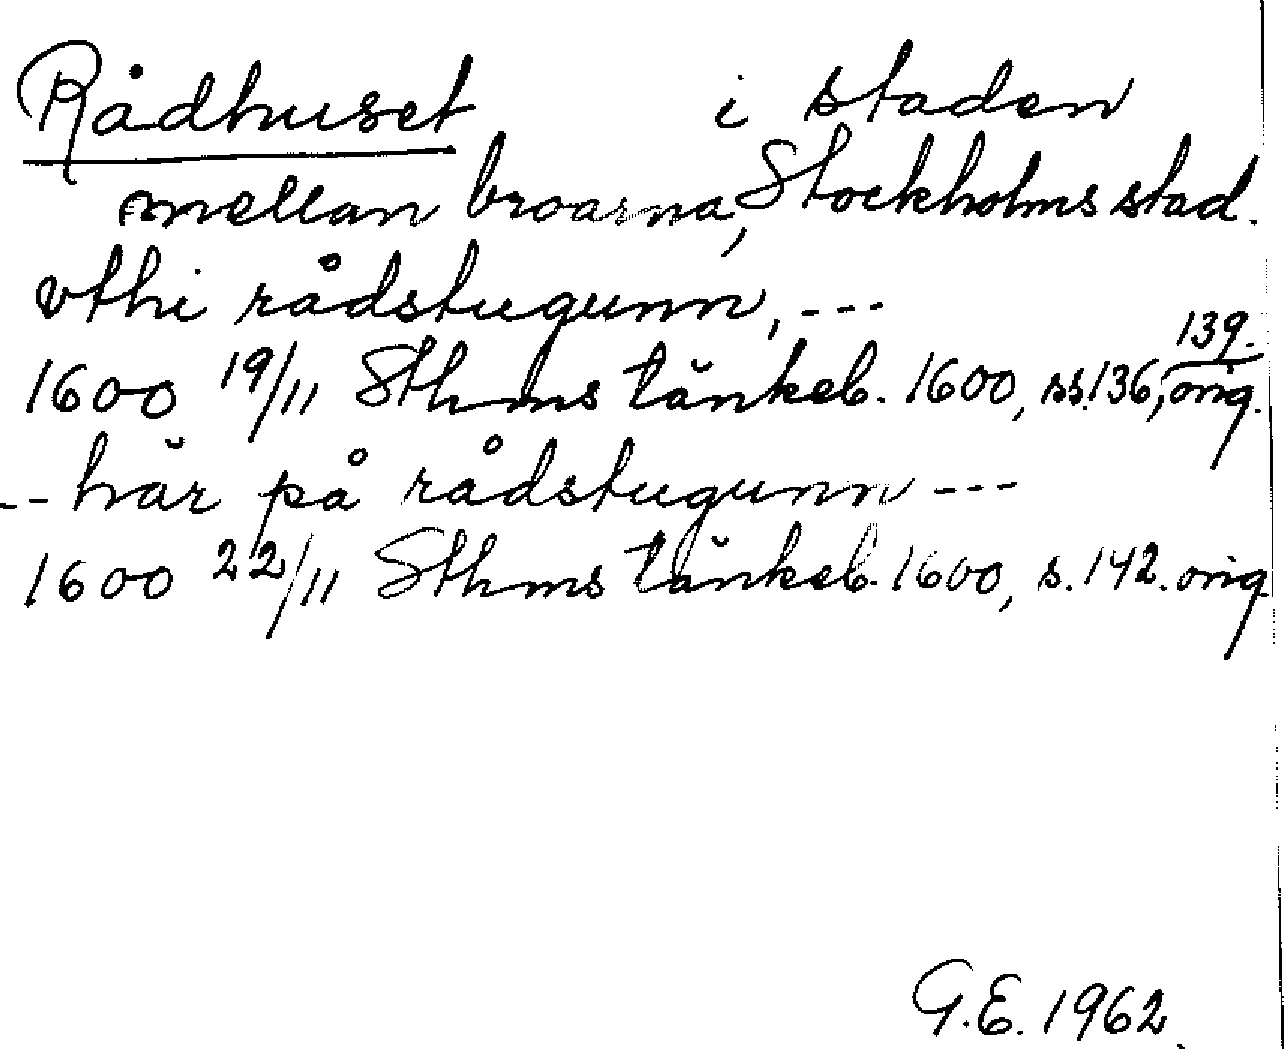 Rådhuset i staden
mellan broarna, Stockholms stad.
vthi rådstugunn, ---
139.
1600 19/11 Sthms tänkeb. 1600, ss.136, orig.
-- här på rådstugunn ---
1600 22/11 Sthms tänkeb. 1600, s.142. orig
G.E. 1962.